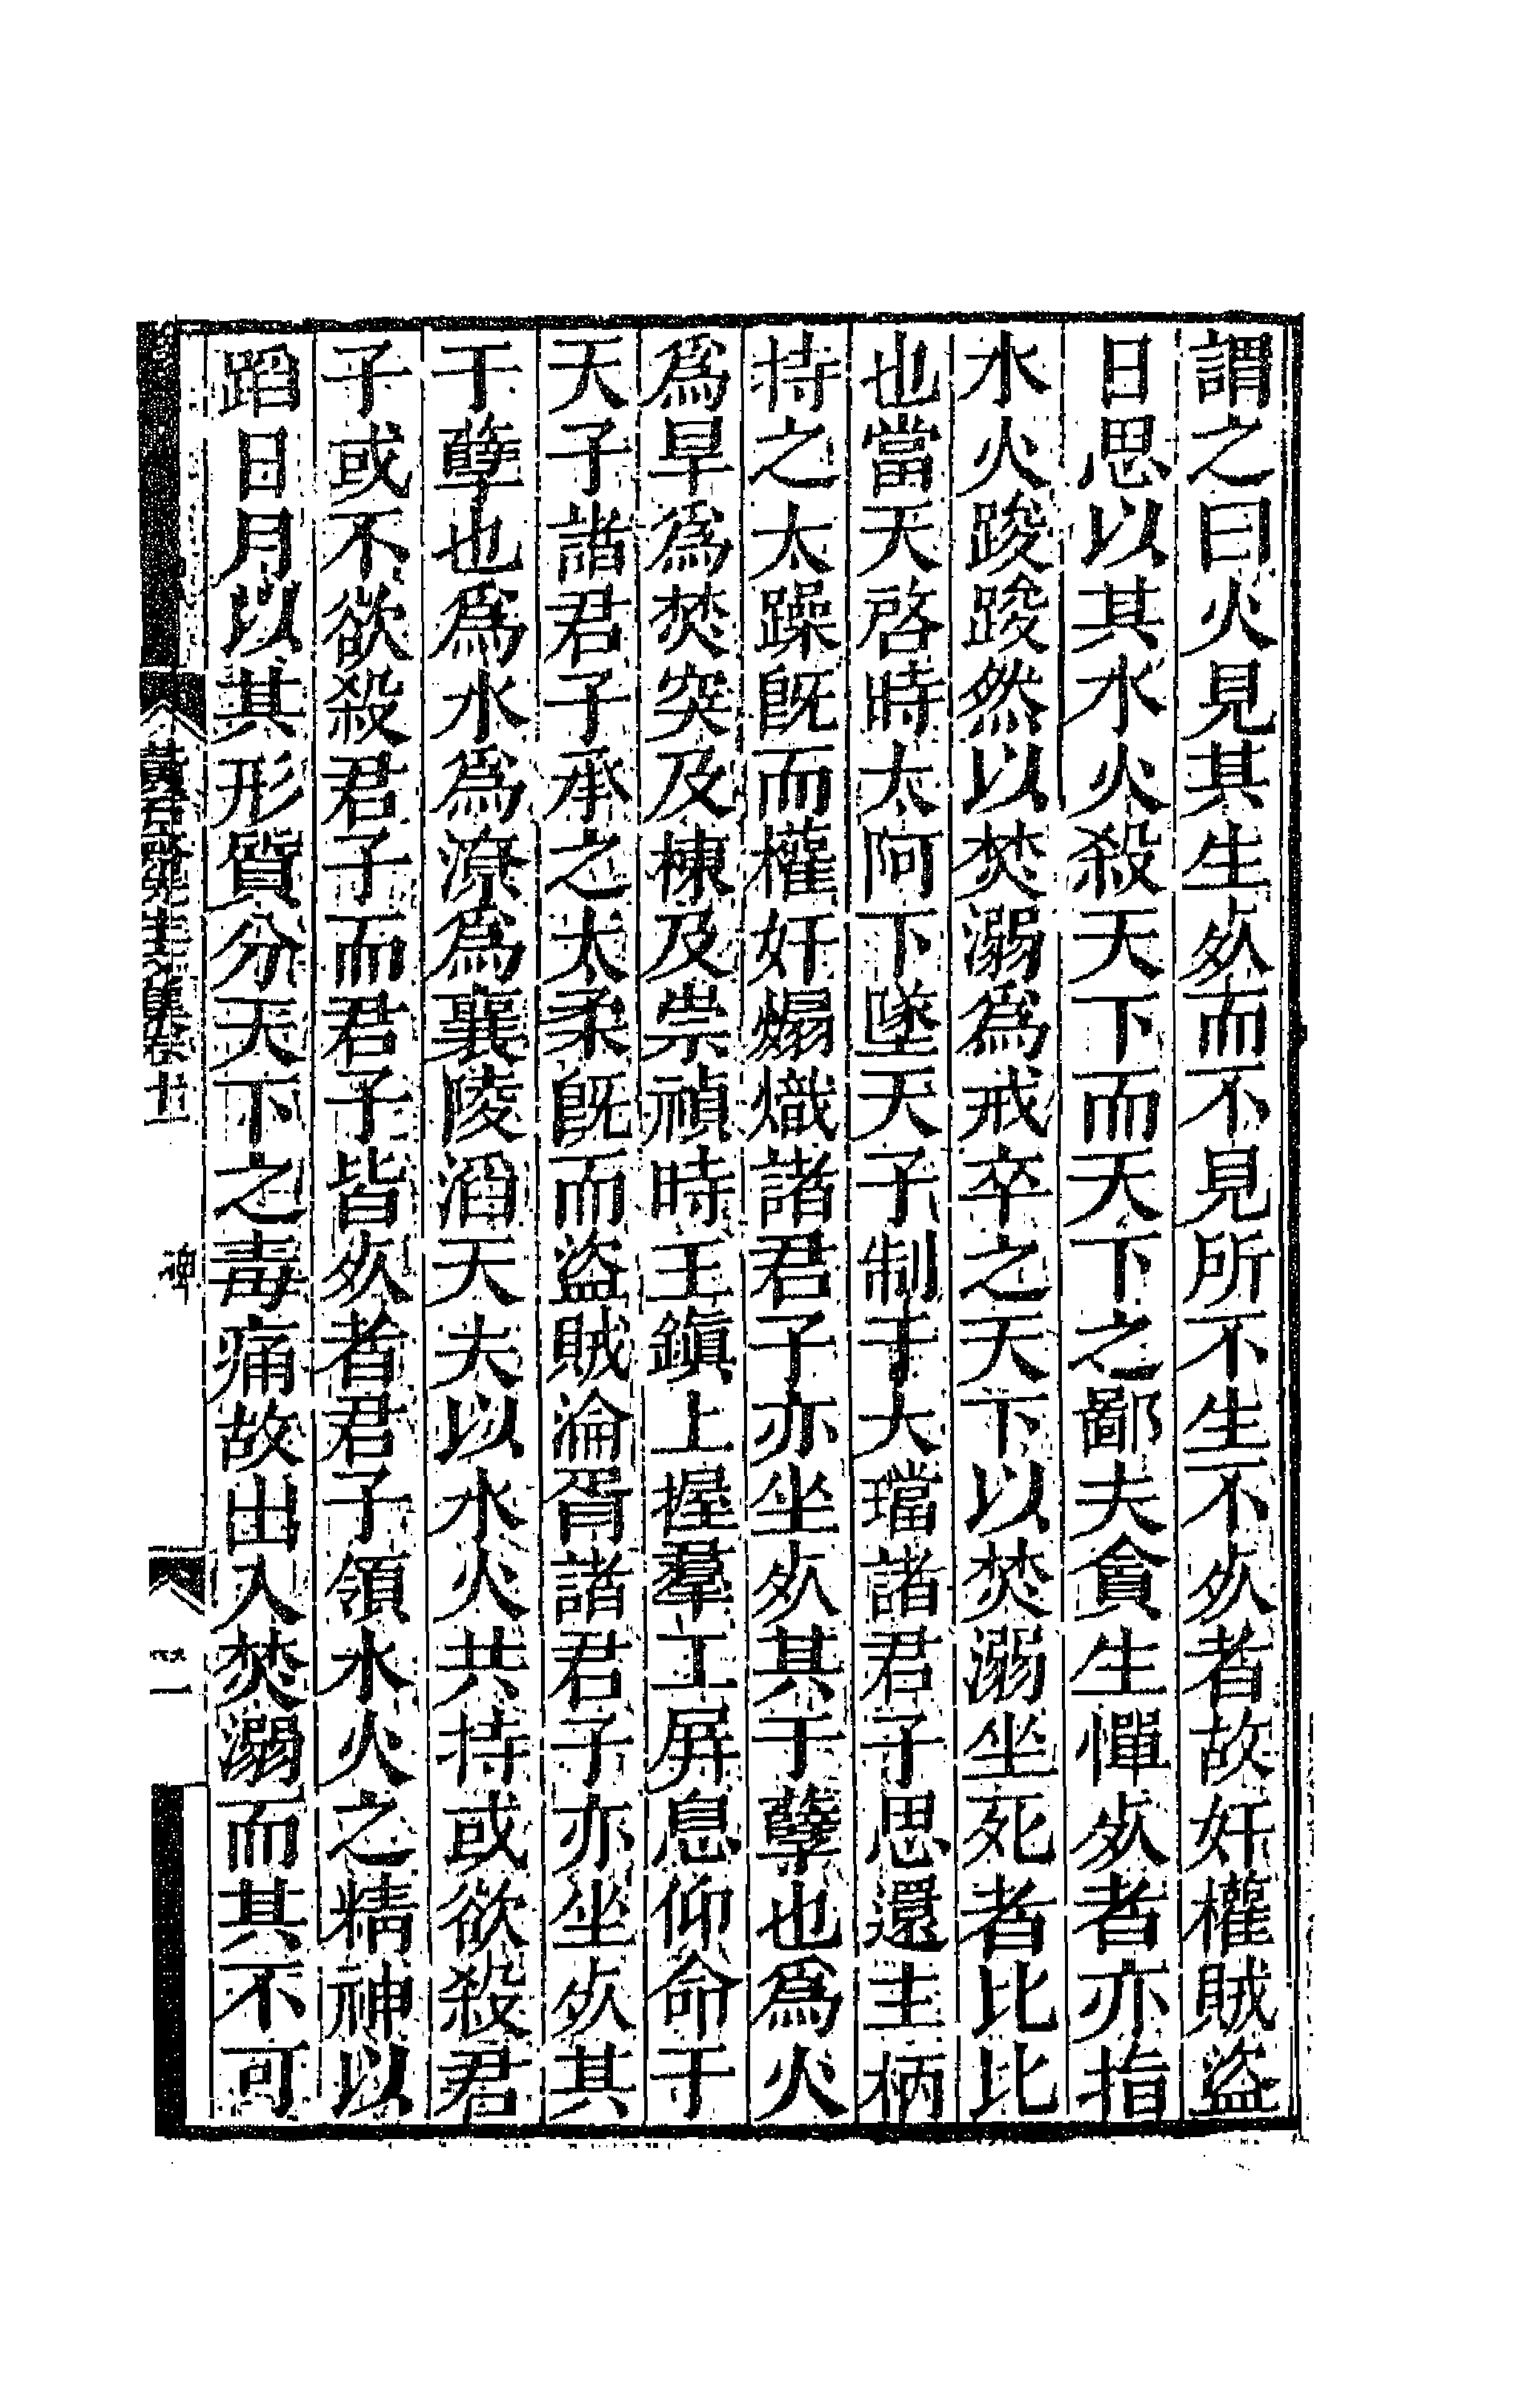 謂之曰火見其生㱙而不見所不生不㱙者故奸權賊盜
日思以其水火殺天下而天下之鄙夫貪生憚㱙者亦指
水火踆踆然以焚溺爲戒卒之天下以焚溺坐死者比比
也當天啓時太阿下墜天子制于大璫諸君子思還主柄
持之太躁旣而權奸煬熾諸君子亦坐㱙其于孽也爲火
爲旱爲焚突及棟及崇禎時王鎭上握羣工屏息仰命于
天子諸君子承之太柔旣而盜賊淪胥諸君子亦坐㱙其
于孽也爲水爲潦爲襄陵滔天夫以水火共持或欲殺君
子或不欲殺君子而君子皆㱙者君子領水火之精神以
蹈日月以其形質分天下之毒痛故出入焚溺而其不可
黃石齋先生集卷十二 碑 二